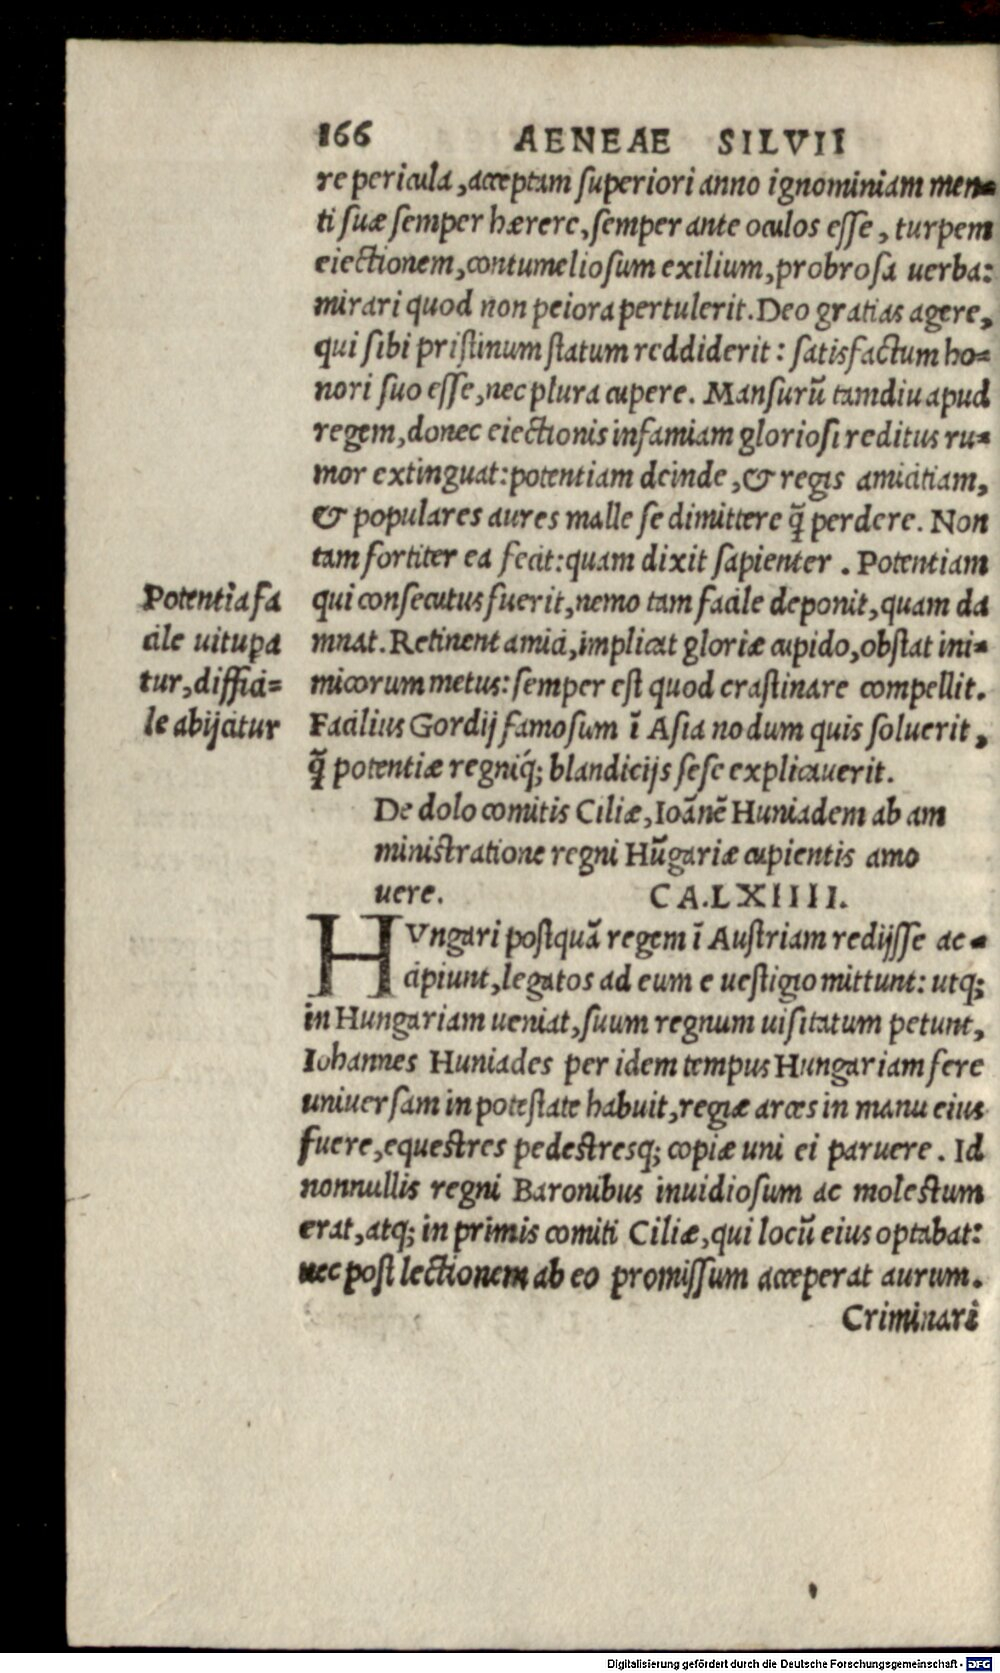 166 AENEAE SILVII
re pericula, acceptam superiori anno ignominiam men=
ti suæ semper hærere, semper ante oculos esse, turpem
eiectionem, contumeliosum exilium, probrosa uerba:
mirari quod non peiora pertulerit. Deo gratias agere,
qui sibi pristinum statum reddiderit: satisfactum ho=
nori suo esse, nec plura cupere. Mansurũ tamdiu apud
regem, donec eiectionis infamiam gloriosi reditus ru=
mor extinguat: potentiam deinde, & regis amicitiam,
& populares aures malle se dimittere q̃ perdere. Non
tam fortiter ea fecit: quam dixit sapienter. Potentiam
qui consecutus fuerit, nemo tam facile deponit, quam da
mnat. Retinent amici, implicat gloriæ cupido, obstat ini=
micorum metus: semper est quod crastinare compellit.
Facilius Gordij famosum ĩ Asia nodum quis soluerit,
q̃ potentiæ regniq́; blandicijs sese explicauerit.
Potentia fa
cile uitupa
tur, diffici=
le abijcitur
De dolo comitis Ciliæ, Ioãnẽ Huniadem ab am
ministratione regni Hũgariæ cupientis amo
uere. CA. LXIIII.
HVngari postquã regem ĩ Austriam redijsse ac=
cipiunt, legatos ad eum e uestigio mittunt: utq;
in Hungariam ueniat, suum regnum uisitatum petunt,
Iohannes Huniades per idem tempus Hungariam fere
uniuersam in potestate habuit, regiæ arces in manu eius
fuere, equestres pedestresq; copiæ uni ei paruere. Id
nonnullis regni Baronibus inuidiosum ac molestum
erat, atq; in primis comiti Ciliæ, qui locũ eius optabat:
nec post lectionem ab eo promissum acceperat aurum.
Criminari
Digitalisierung gefördert durch die Deutsche Forschungsgemeinschaft - DFG